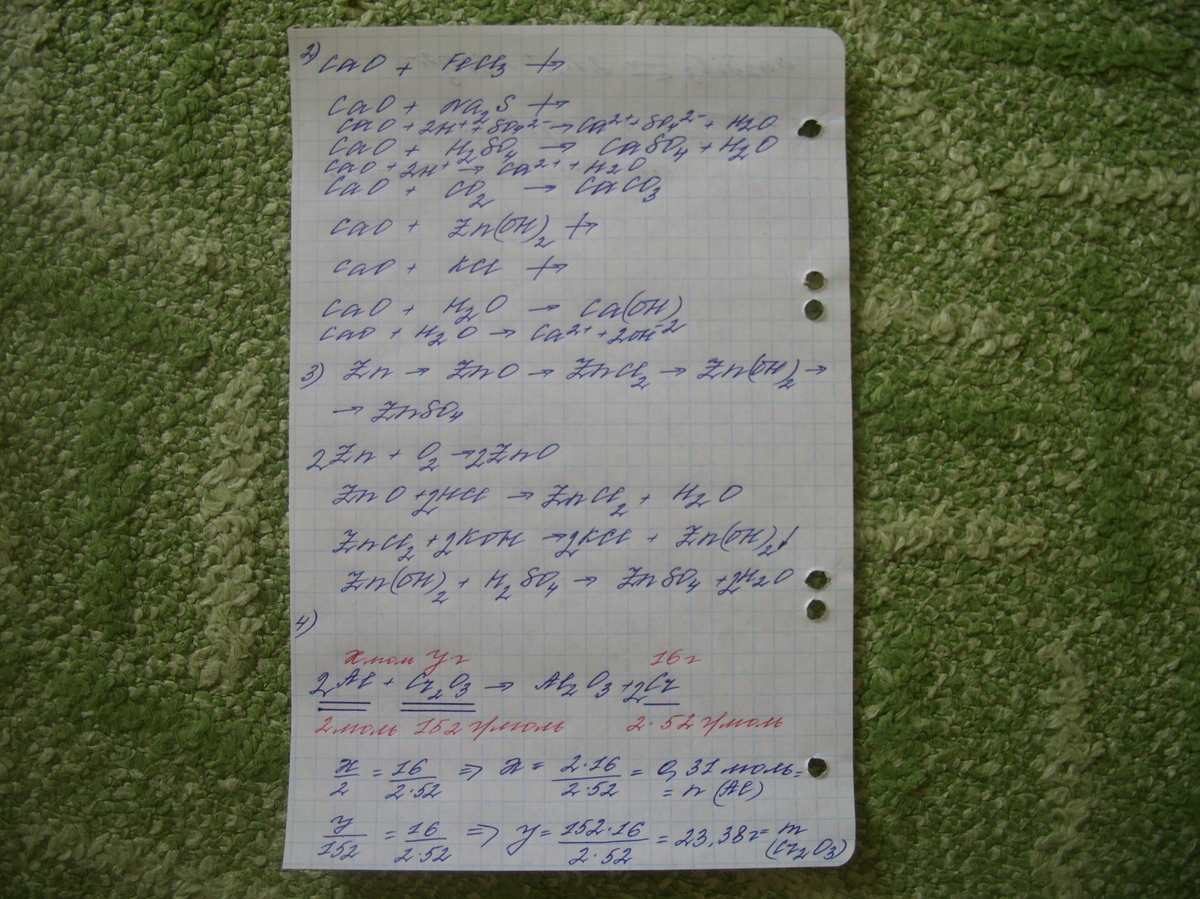 2) CaO + FeCl₃ ↛
CaO + Na₂S ↛
CaO + 2H⁺ + SO₄²⁻ → Ca²⁺ + SO₄²⁻ + H₂O
CaO + H₂SO₄ → CaSO₄ + H₂O
CaO + 2H⁺ → Ca²⁺ + H₂O
CaO + CO₂ → CaCO₃
CaO + Zn(OH)₂ ↛
CaO + KCl ↛
CaO + H₂O → Ca(OH)₂
CaO + H₂O → Ca²⁺ + 2OH⁻
3) Zn → ZnO → ZnCl₂ → Zn(OH)₂ →
→ ZnSO₄
2Zn + O₂ → 2ZnO
ZnO + 2HCl → ZnCl₂ + H₂O
ZnCl₂ + 2KOH → 2KCl + Zn(OH)₂↓
Zn(OH)₂ + H₂SO₄ → ZnSO₄ + 2H₂O
4)
x мол y г 16 г
2Al + Cr₂O₃ → Al₂O₃ + 2Cr
2моль 152 г/моль 2·52 г/моль
x/2 = 16/2·52 => x = 2·16/2·52 = 0,31 моль =
= n (Al)
y/152 = 16/2·52 => y = 152·16/2·52 = 23,38 г = m
(Cr₂O₃)